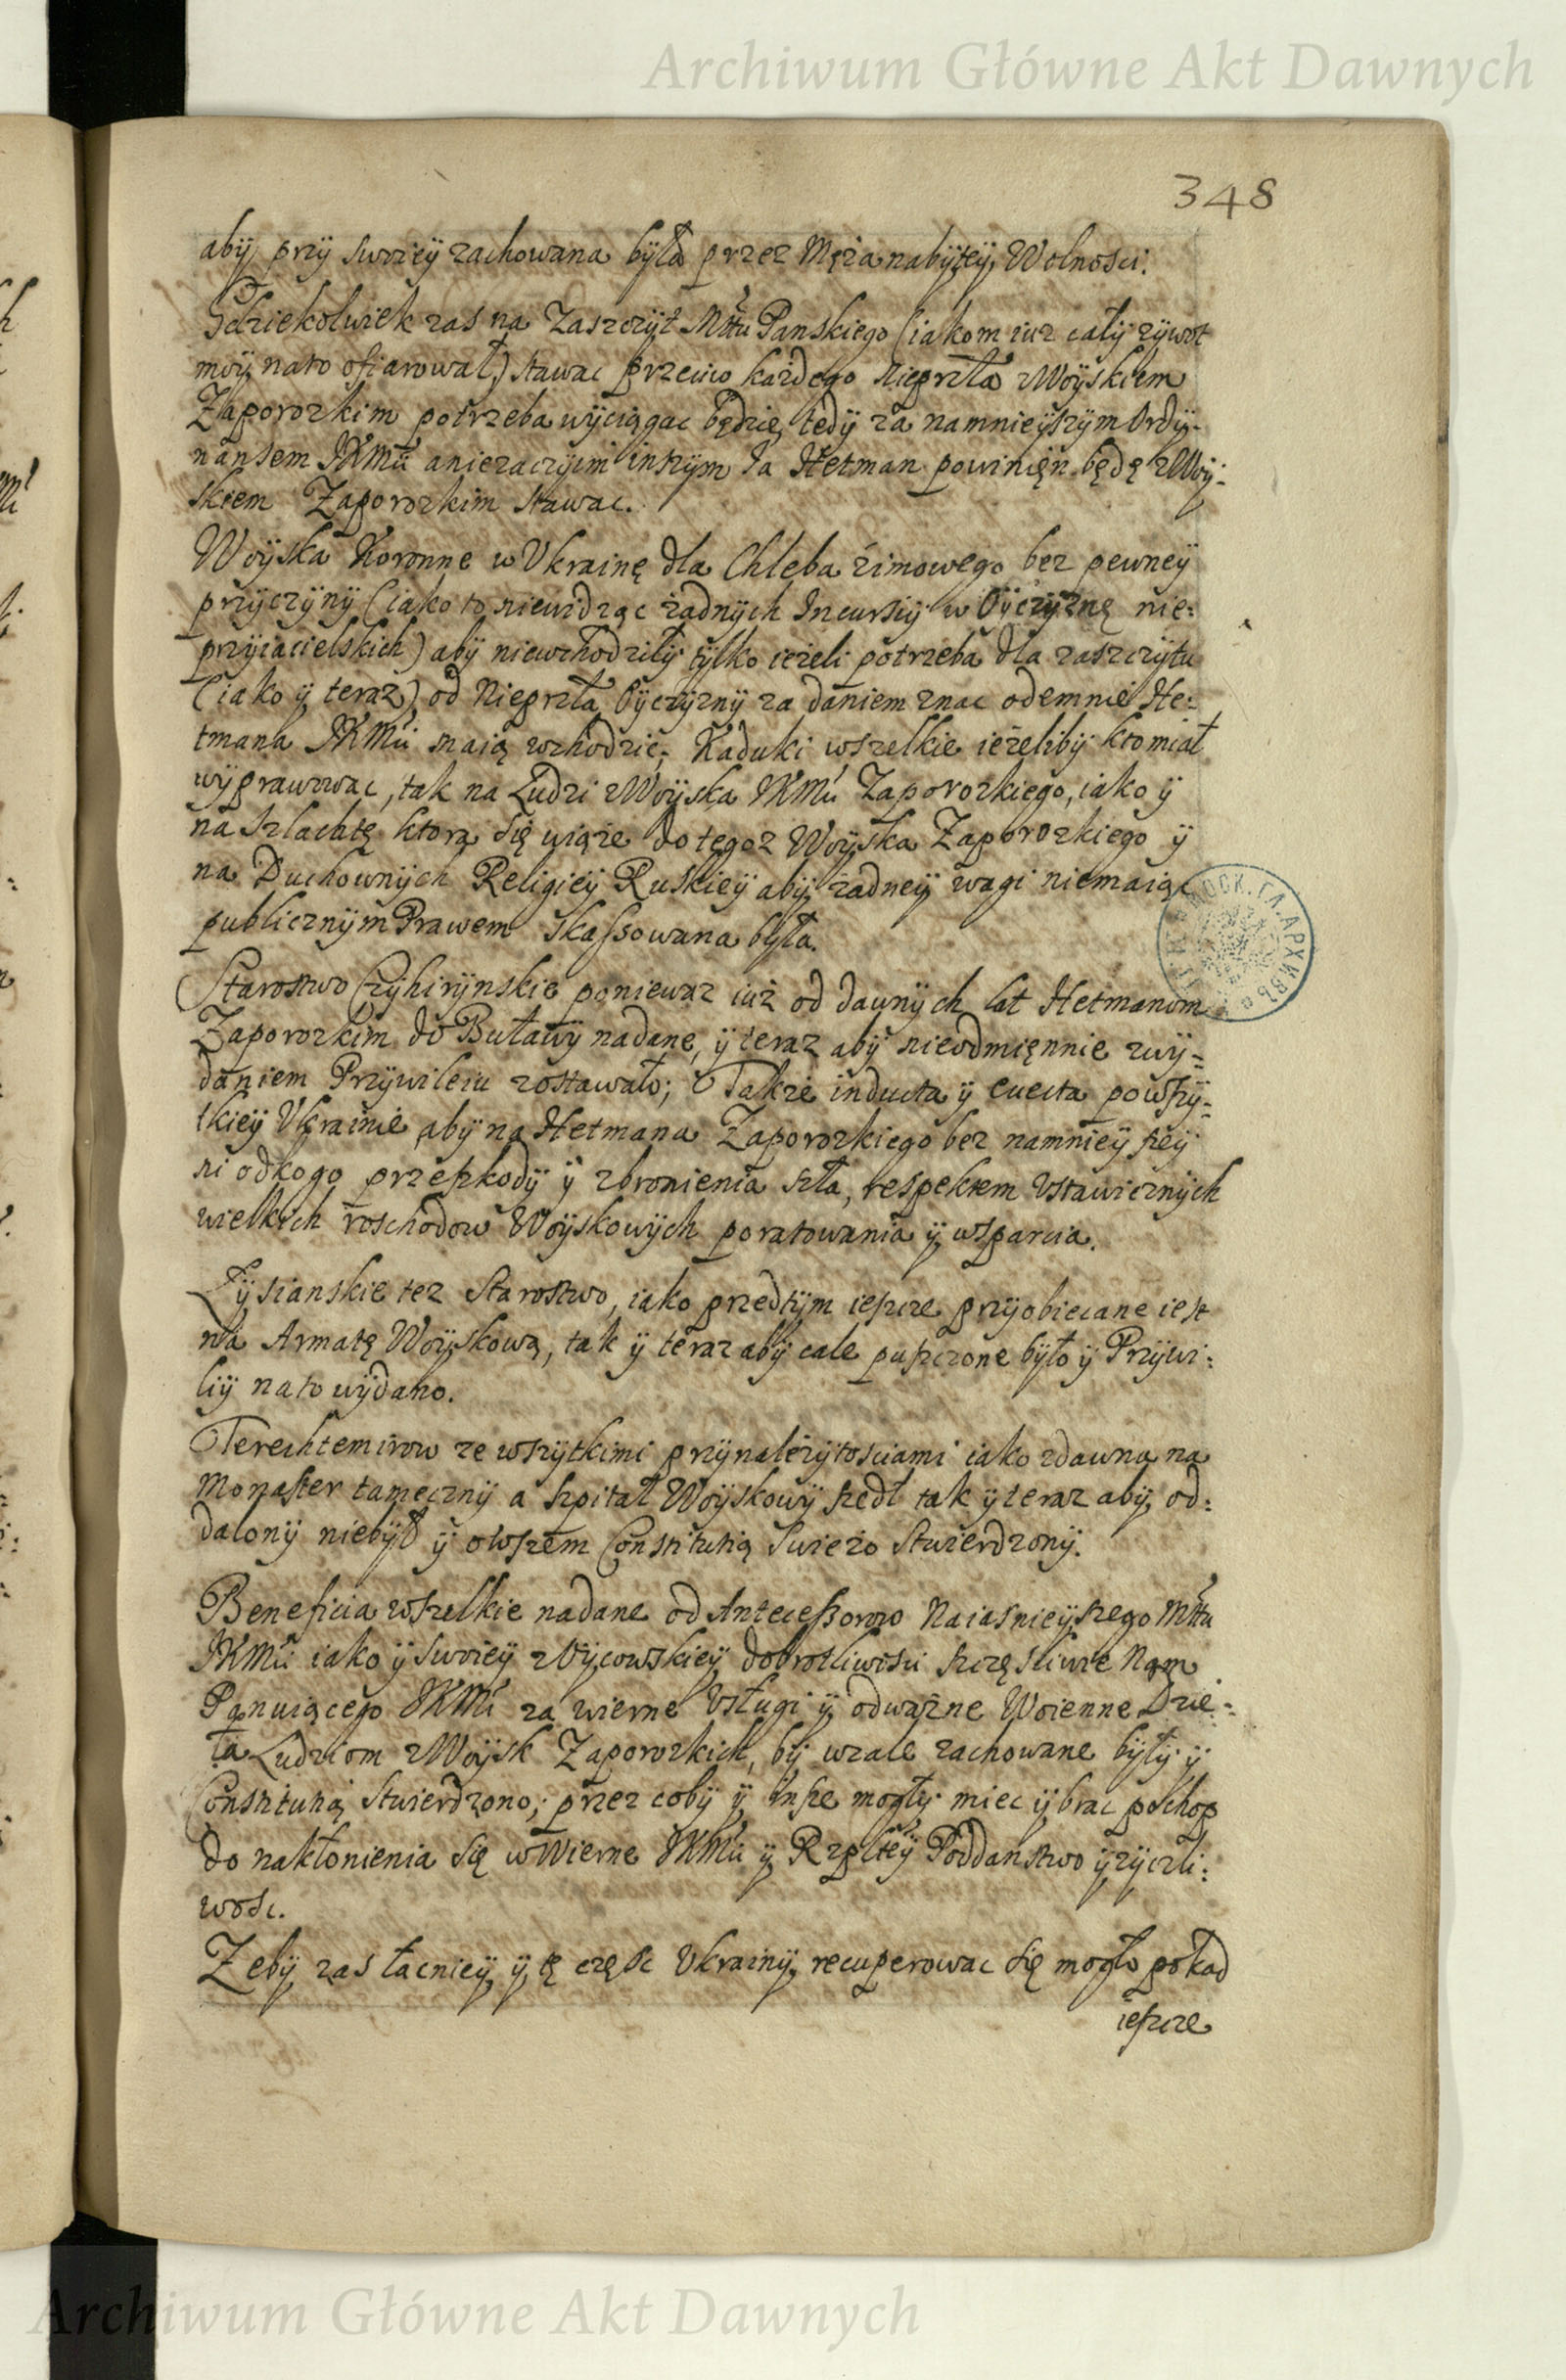 Archiwum Główne Akt Dawnych
348
abÿ przÿ swoieÿ zachowana bÿła przez Męża nabÿteÿ Wolnosci.
Gdziekolwiek zas na Zaszczÿt Mttu Panskiego (iakom iuz całÿ zÿwot
moÿ nato ofiarował,) stawac przeciwo każdego nieprzła zWoÿskiem
Zaporozkim potrzeba wÿciągac będzie, tedÿ za namnieÿszÿm Ordÿ-
nansem JKMci aniezaczÿim inszÿm Ja Hetman powinięn będę zWoÿ-
skiem Zaporozkim stawac.
Woÿska Koronne w Vkrainę dla Chleba zimowego bez pewneÿ
przÿczÿnÿ (iako to niewidząc żadnÿch Incursiÿ w Oÿczÿznę nie:
przÿiacielskich) abÿ niewchodziłÿ tÿlko ieżeli potrzeba dla zaszczÿtu
(iako ÿ teraz) od Nieprzła Oÿczÿznÿ za daniem znac odemnie He:
tmana JKMci maią wchodzic; Kaduki wszelkie ieżelibÿ kto miał
wÿprawowac, tak na Ludzi zWoÿska JKMci Zaporozkiego, iako ÿ
na szlachtę ktora się wiąże do tegoz Woÿska Zaporozkiego ÿ
na Duchownÿch Religieÿ Ruskieÿ abÿ żadneÿ wagi niemaiąc
publicznÿm Prawem skassowana bÿła.
Starostwo Czÿhirÿnskie poniewaz iuż od dawnÿch lat Hetmanom
Zaporozkim do Buławÿ nadane, ÿ teraz abÿ nieodmiennie zwÿ-
daniem Przÿwileiu zostawało; Takze inducta ÿ euecta powszÿ-
tkieÿ Vkrainie abÿ na Hetmana Zaporozkiego bez namnieÿszeÿ
ni odkogo przeszkodÿ ÿ zbronienia szła, respektem Vstawicznÿch
wielkich roschodow Woÿskowÿch poratowania ÿ wsparcia.
Łÿsianskie tez Starostwo, iako przedtÿm ieszcze przÿobiecane iest
na Armatę Woÿskową, tak ÿ teraz abÿ cale puszczone bÿło ÿ Przÿwi:
liÿ nato wÿdano.
Terechtemirow ze wszÿtkimi przÿnależÿtosciami iako zdawna na
Monaster tamecznÿ a szpitał Woÿskowÿ szedł tak ÿ teraz abÿ od:
dalonÿ niebÿł ÿ owszem Constitutią swieżo stwierdzonÿ.
Beneficia wszelkie nadane od Antecessorow Naiasnieÿszego Mttu
JKMci iako ÿ swoieÿ zOÿcowskieÿ dobrotliwosci szczęsliwie Nam
Panuiącego JKMci za wierne Vsługi ÿ odważne Woienne Dzie:
ła Ludziom zWoÿsk Zaporozkich, bÿ wcale zachowane bÿłÿ ÿ
Constitutią stwierdzono; przez cobÿ ÿ insze mogłÿ miec ÿ brac pochop
do nakłonienia się w Wierne JKMci ÿ Rzplteÿ Poddanstwo ÿ zÿczli:
wosc.
Zebÿ zas łacnieÿ ÿ tę częsc Vkrainÿ recuperowac się mogło pokad
ieszcze
Archiwum Główne Akt Dawnych